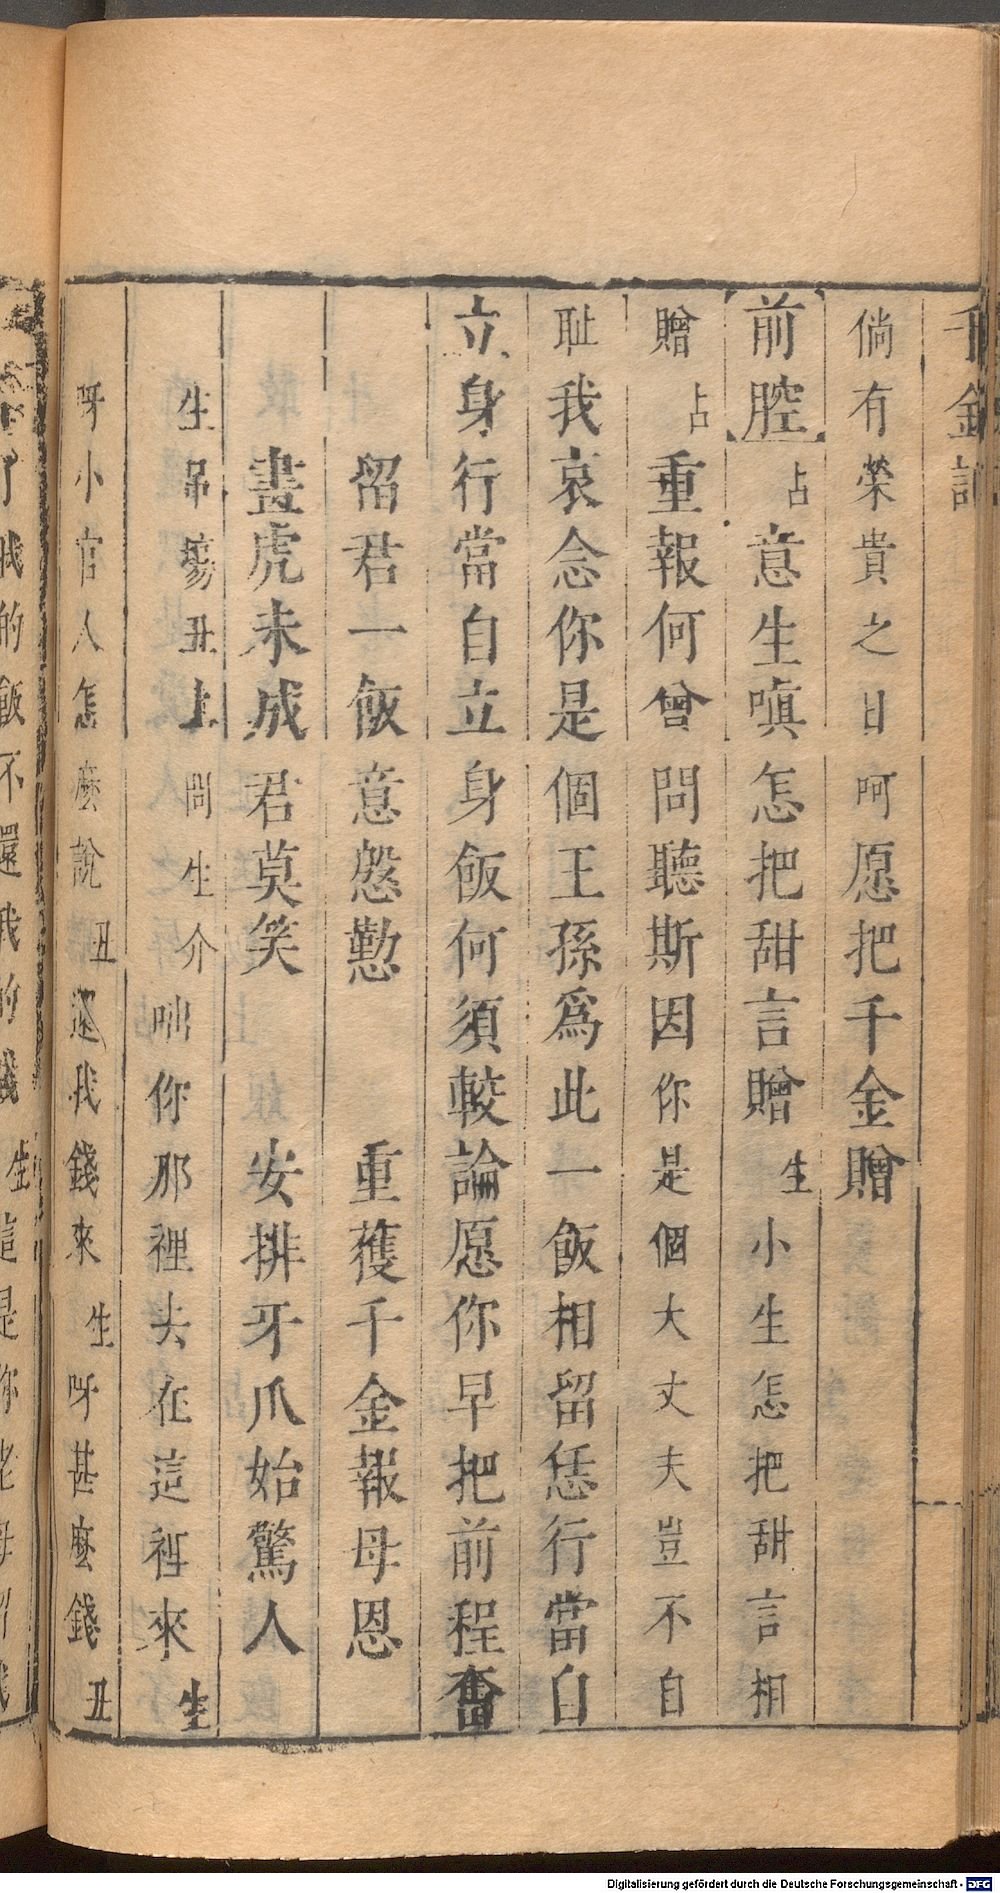 千金記
倘有榮貴之日呵愿把千金贈
前腔占意生嗔怎把甜言贈生小生怎把甜言相
贈占重報何曾問聽斯因你是個大丈夫豈不自
耻我哀念你是個王孫爲此一飯相留恁行當自
立身行當自立身飯何須較論愿你早把前程奮
留君一飯意慇懃　重獲千金報母恩
畫虎未成君莫笑　安排牙爪始驚人
生吊場丑上問生介咄你那裡去在這裡來生
呀小官人怎麼說丑還我錢來生呀甚麼錢丑
了我的飯不還我的錢生這是你老母留我
Digitalisierung gefördert durch die Deutsche Forschungsgemeinschaft - DFG